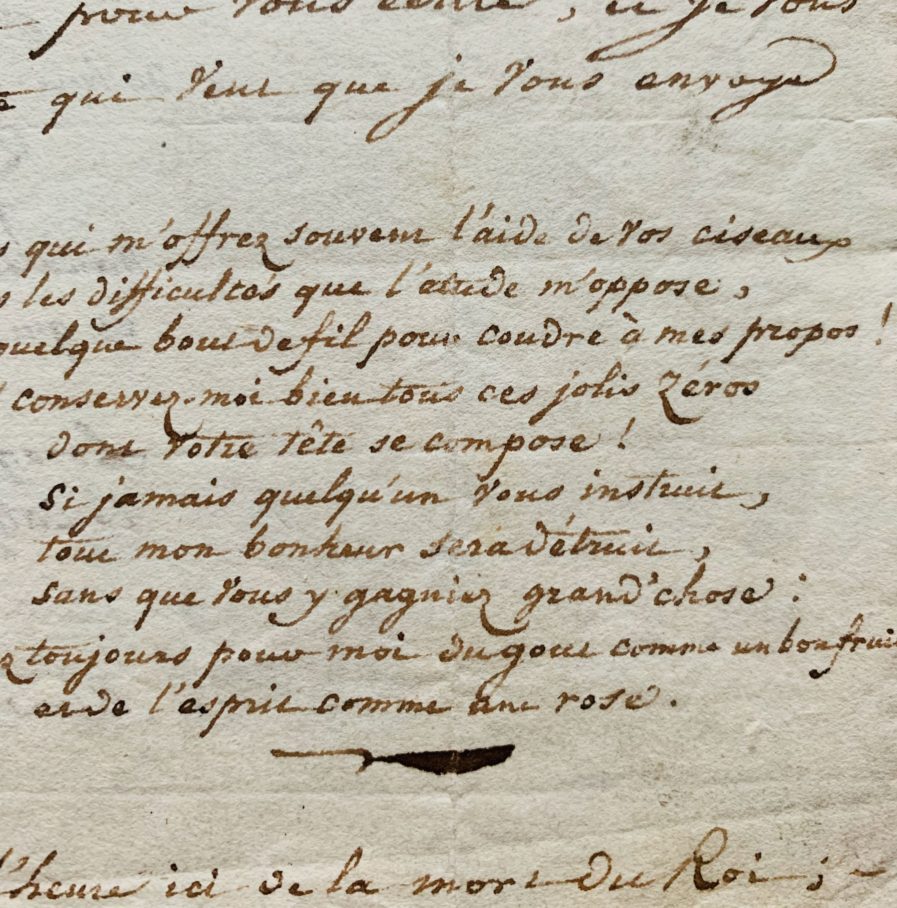 pour vous écrire, et je vous
qui veut que je vous envoye
qui m'offrez souvent l'aide de vos ciseaux
les difficultés que l'étude m'oppose,
quelque bout de fil pour coudre à mes propos !
conservez-moi bien tous ces jolis zéros
dont votre tête se compose !
si jamais quelqu'un vous instruit,
tout mon bonheur sera détruit,
sans que vous y gagniez grand'chose :
toujours pour moi du gout comme un bon fruit
et de l'esprit comme une rose.
l'heure ici de la mort du Roi ;